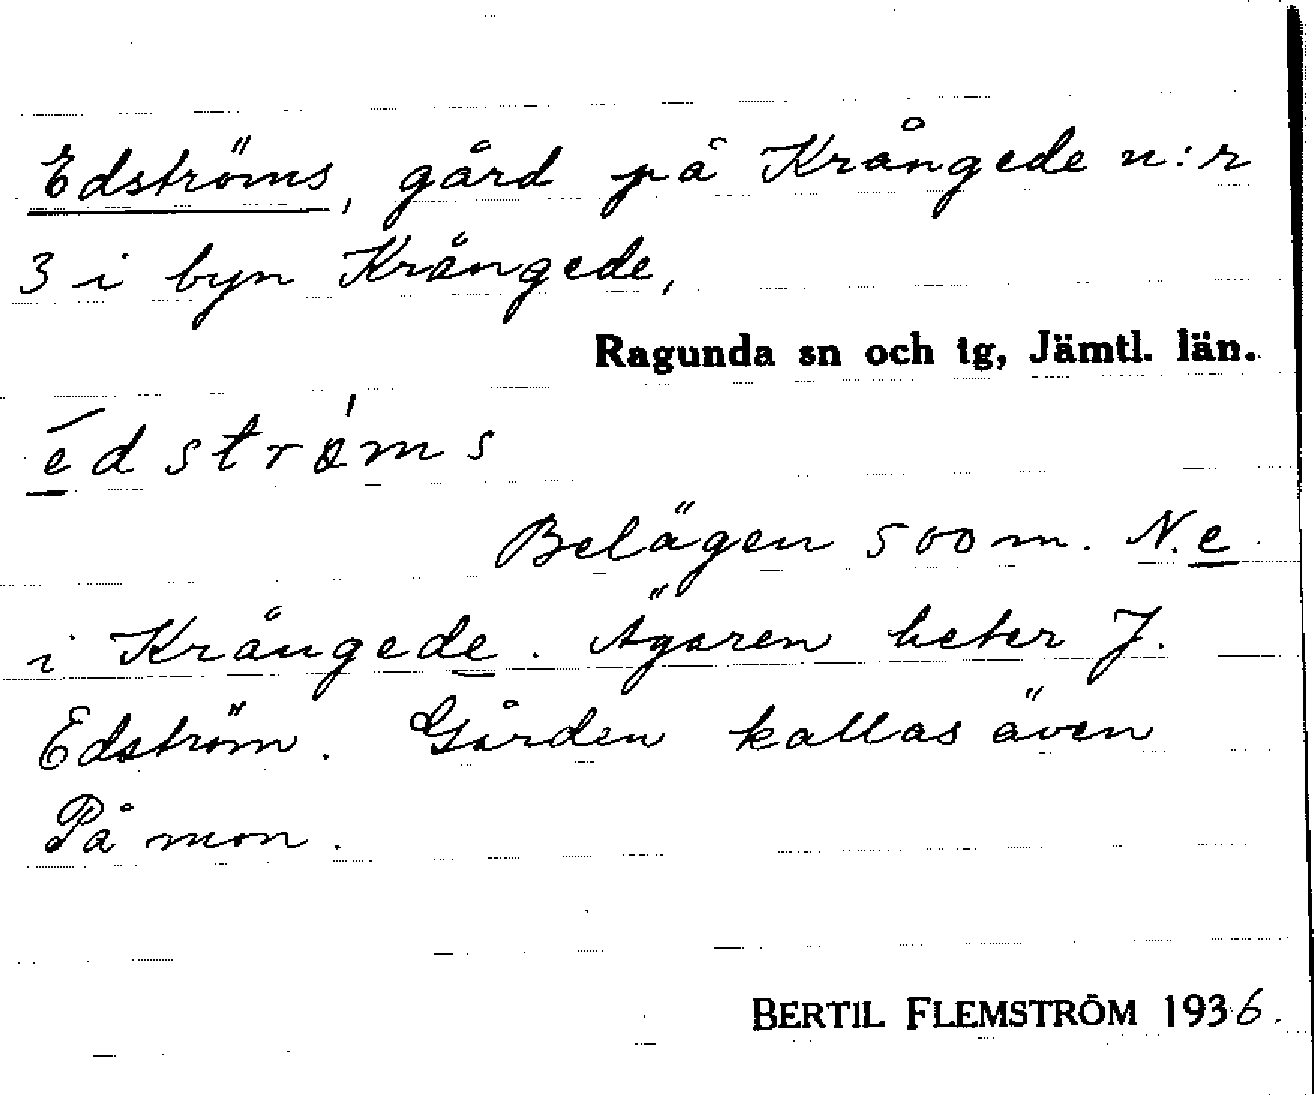 Edströms, gård på Krångede n:r
3 i byn Krångede,
Ragunda sn och tg, Jämtl. län.
édströ̀ms
Belägen 500 m. N.e
i Krångede. Ägaren heter J.
Edström. Gården kallas även
På mon.
BERTIL FLEMSTRÖM 1936.